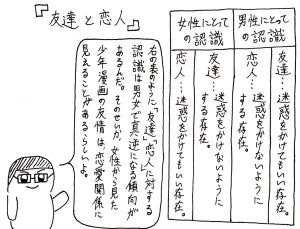 『友達と恋人』
男性にとって
の認識
友達…迷惑をかけてもいい存在。
恋人…迷惑をかけないように
する存在。
女性にとって
の認識
友達…迷惑をかけないように
する存在。
恋人…迷惑をかけてもいい存在。
右の表のように、「友達」「恋人」に対する
認識は男女で真逆になる傾向が
あるんだ。そのせいか、女性から見た
少年漫画の友情は、恋愛関係に
見えることがあるらしいよ。